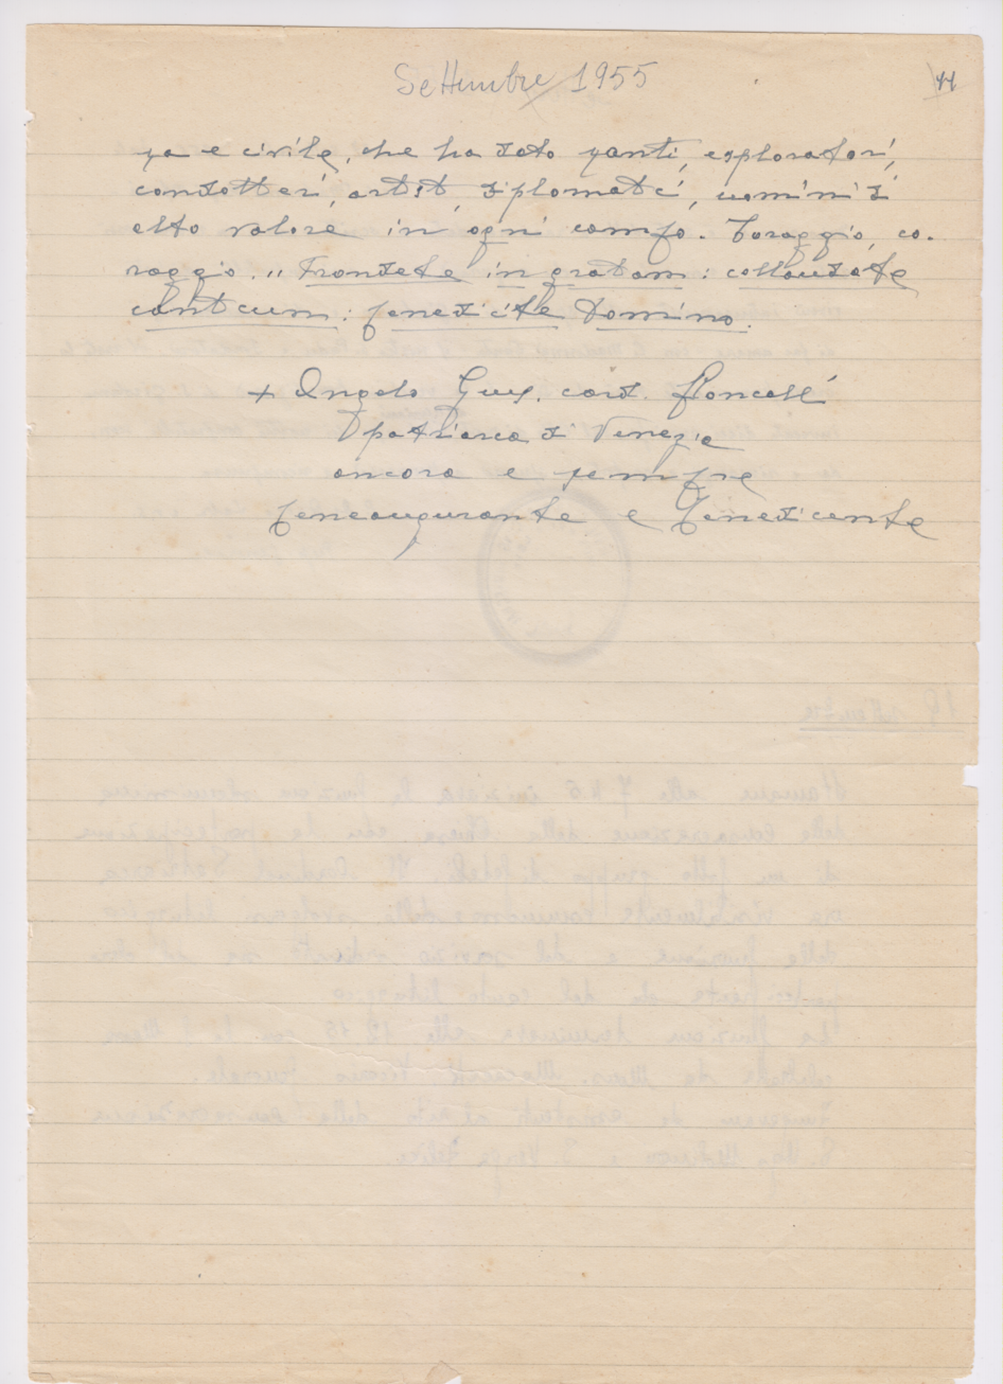 Settembre 1955
11
sa e civile, che ha dato santi, esploratori,
condottieri, artisti, diplomatici, uomini di
alto valore in ogni campo. Coraggio, co-
raggio. " Frondete in gratiam: collaudate
canticum: benedicite Domino.
+ Angelo Gius. card. Roncalli
patriarca di Venezia
ancora e sempre
beneaugurante e benedicente